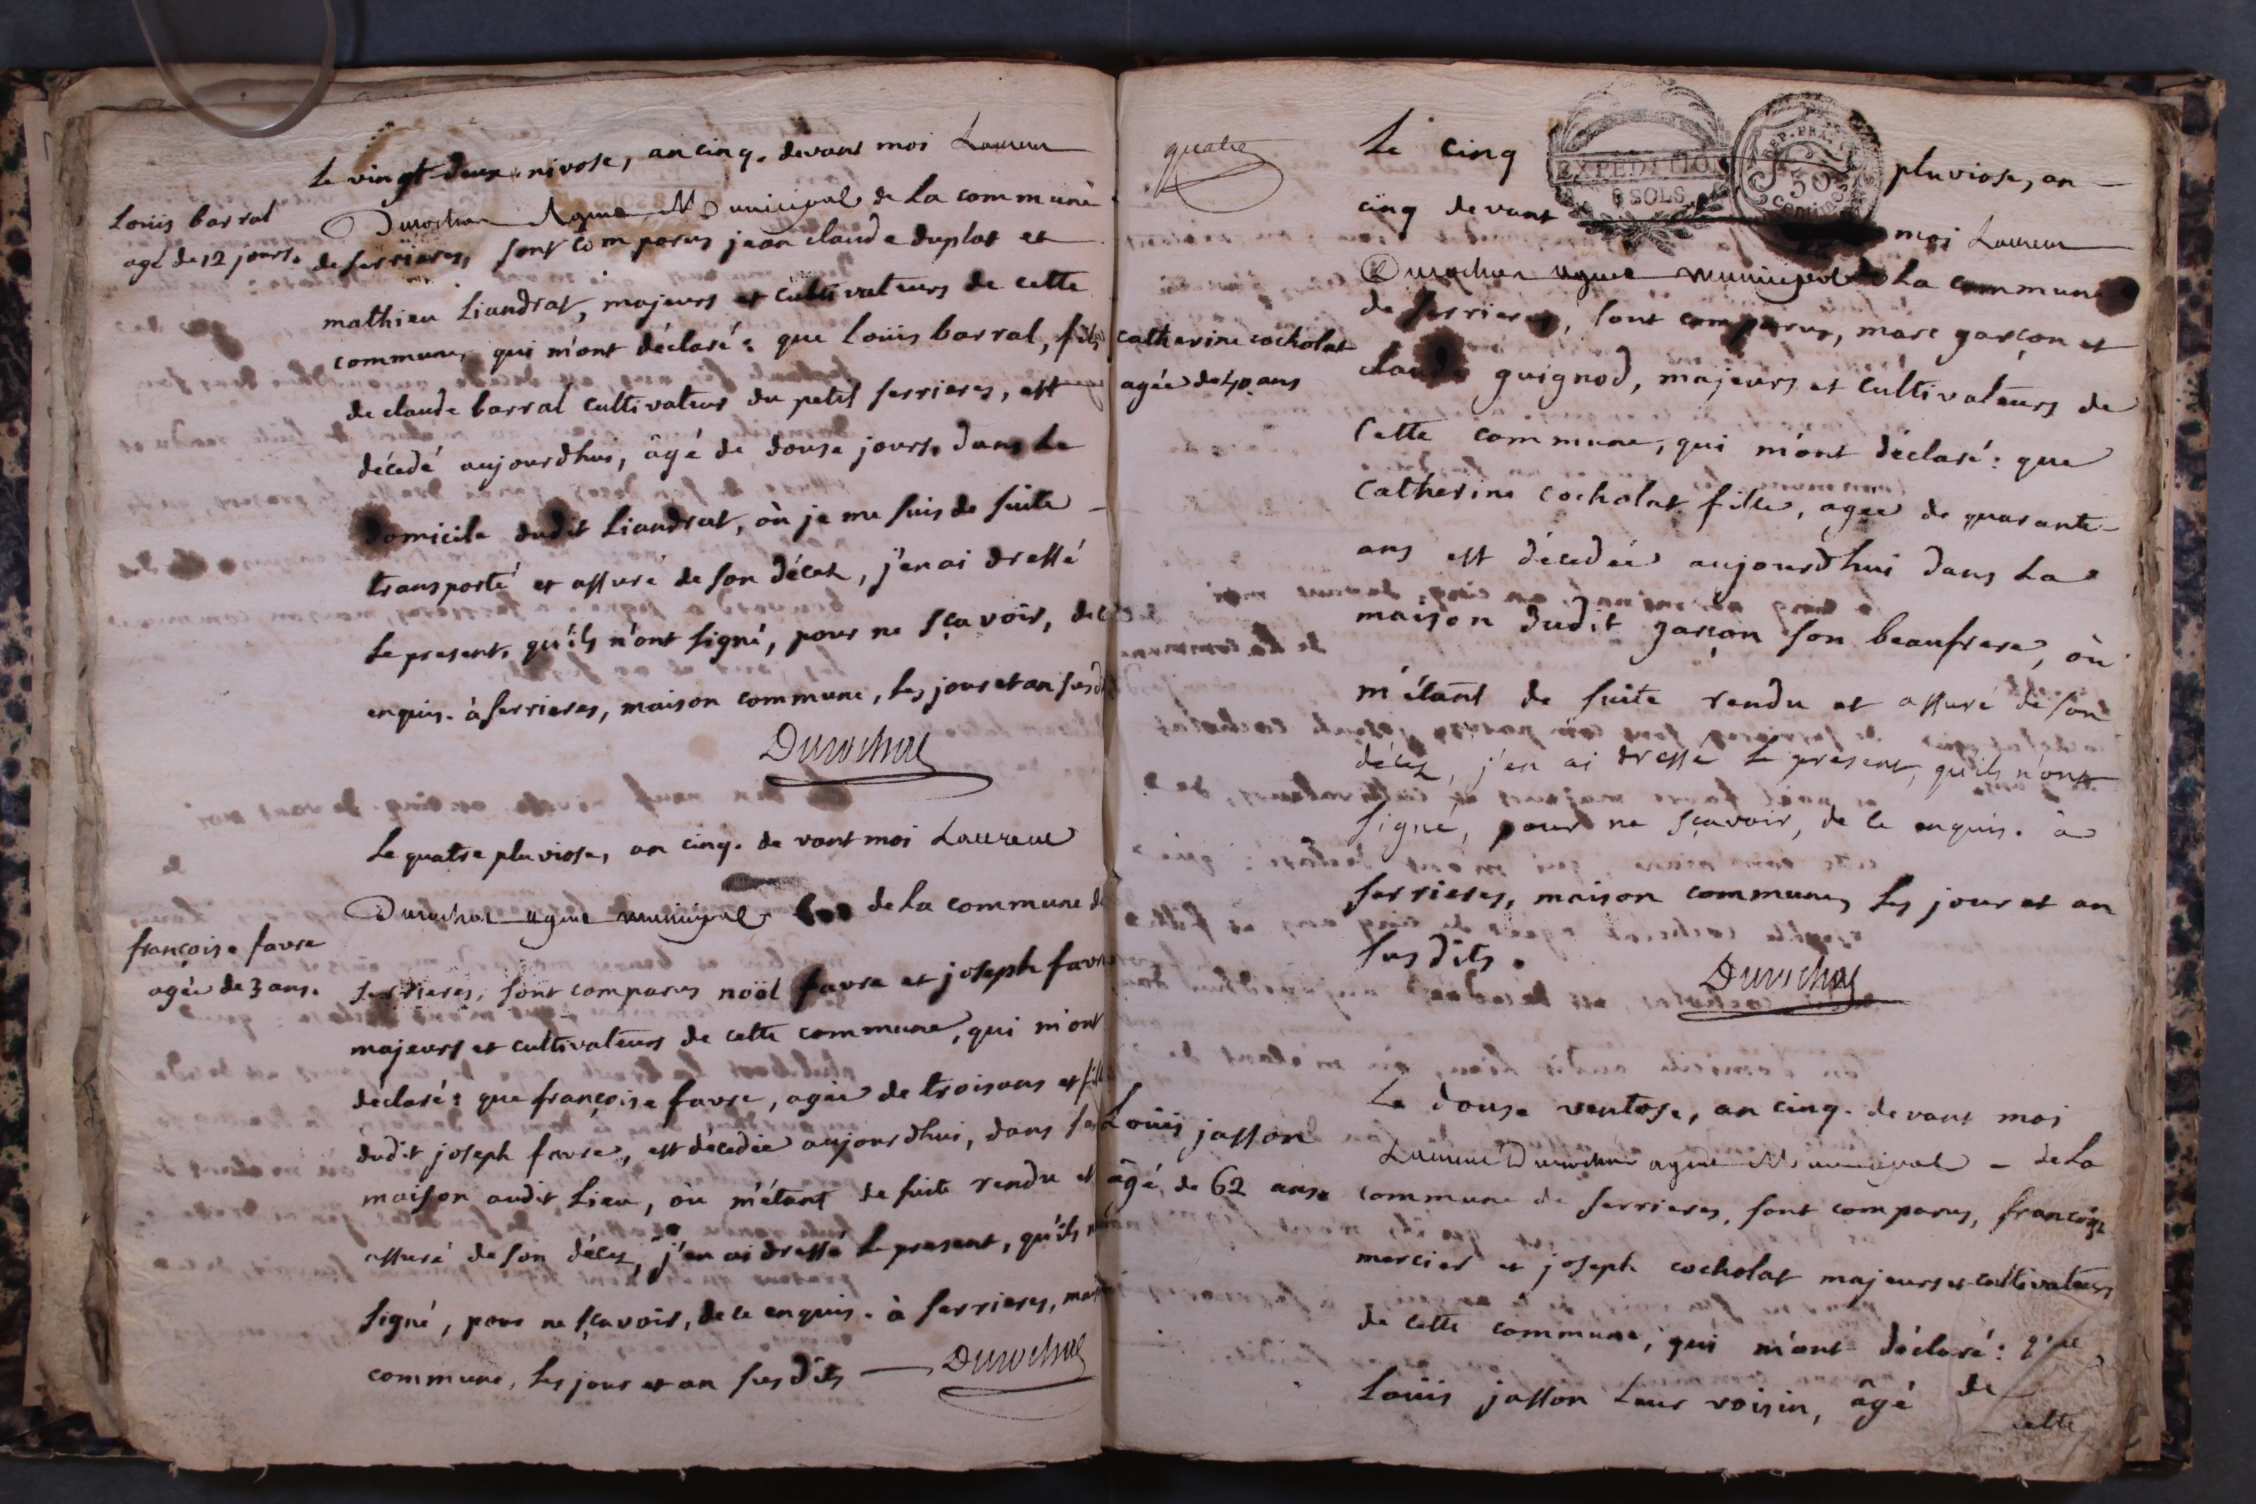 Le vingt deux nivose, an cinq. devant moi Laurent
Louis barral
agé de 12 jours.
Durochat Agent Municipal de la commune
de ferrieres, sont comparus jean claude duplat et
mathieu Liandrat, majeurs et cultivateurs de cette
commune, qui m'ont déclaré: que Louis barral, fils
de claude barral cultivateur du petit ferrieres, est
décedé aujourdhui, âgé de douse jours, dans le
domicile dudit Liandrat, où je me suis de suite
transporté et assuré de son décez, j'en ai dressé
le present, qu'ils n'ont signé, pour ne sçavoir, de c
enquis. à ferrieres, maison commune, les jour et an susd
Durochat
Le quatre pluviose, an cinq. devant moi Laurent
Durochat agent municipal de la commune de
françoise favre
agée de 3 ans.
ferrieres, sont comparus noël favre et joseph favre
majeurs et cultivateurs de cette commune, qui m'ont
déclaré: que françoise favre, agée de trois ans et fille
dudit joseph favre, est décedée aujourdhui, dans sa
maison audit Lieu, où m'étant de suite rendu et
assuré de son décez, j'en ai dressé le present, qu'ils n'ont
signé, pour ne sçavoir, de ce enquis. à ferrieres, maison
commune, les jour et an susdits Durochat
quatre
EXPÉDITION
8 SOLS
REP. FRA.
50
centimes
Le cinq pluviose, an
cinq devant moi Laurent
Durochat agent municipal de La commune
de ferrieres, sont comparus, marc garçon et
catherine cocholat
agée de 40 ans
claude guignod, majeurs et cultivateurs de
cette commune, qui m'ont déclaré: que
catherine cocholat fille, agée de quarante
ans est décedée aujourdhui dans la
maison dudit garçon son beaufrere, où
m'étant de suite rendu et assuré de son
décez, j'en ai dressé le present, qu'ils n'ont
signé, pour ne sçavoir, de ce enquis. à
ferrieres, maison commune, les jour et an
susdits.
Durochat
Le douse ventose, an cinq. devant moi
Louis jasson
âgé de 62 ans.
Laurent Durochat agent Municipal de La
commune de ferrieres, sont comparus, françois
mercier et joseph cocholat majeurs et cultivateurs
de cette commune, qui m'ont déclaré: que
Louis jasson Leur voisin, âgé de